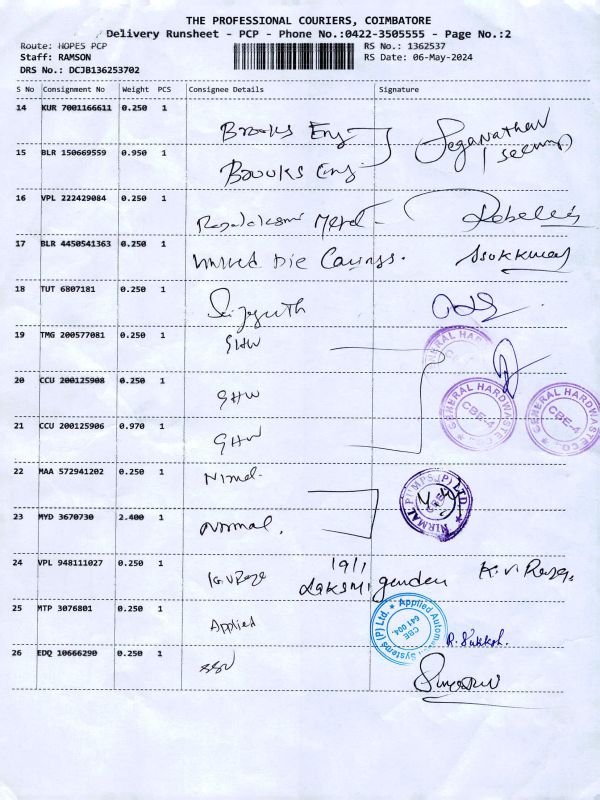 THE PROFESSIONAL COURIERS, COIMBATORE
Delivery Runsheet - PCP - Phone No.:0422-3505555 - Page No.:2
Route: HOPES PCP RS No.: 1362537
Staff: RAMSON RS Date: 06-May-2024
DRS No.: DCJB136253702
S No Consignment No Weight PCS Consignee Details Signature
14 KUR 7001166611 0.250 1 Brooks Eng
15 BLR 150669559 0.950 1 Brooks Eng
16 VPL 222429084 0.250 1
17 BLR 4450541363 0.250 1 United Die Casings.
18 TUT 6807181 0.250 1
19 TMG 200577081 0.250 1 GHW
GENERAL HAR
20 CCU 200125908 0.250 1 GHW
GENERAL HARDWARE CBE-4
GENERAL HARDWARE CBE-4
21 CCU 200125906 0.970 1 GHW
22 MAA 572941202 0.250 1 Nirmal
NIRMAL PUMPS (P) LTD.
23 MYD 3670730 2.400 1 Normal.
24 VPL 948111027 0.250 1 K.V Raja 19/1 K. V. Raja,
25 MTP 3076801 0.250 1 Applied
Applied Automation Systems (P) Ltd. CBE 641 004.
26 EDQ 10666290 0.250 1 SSV